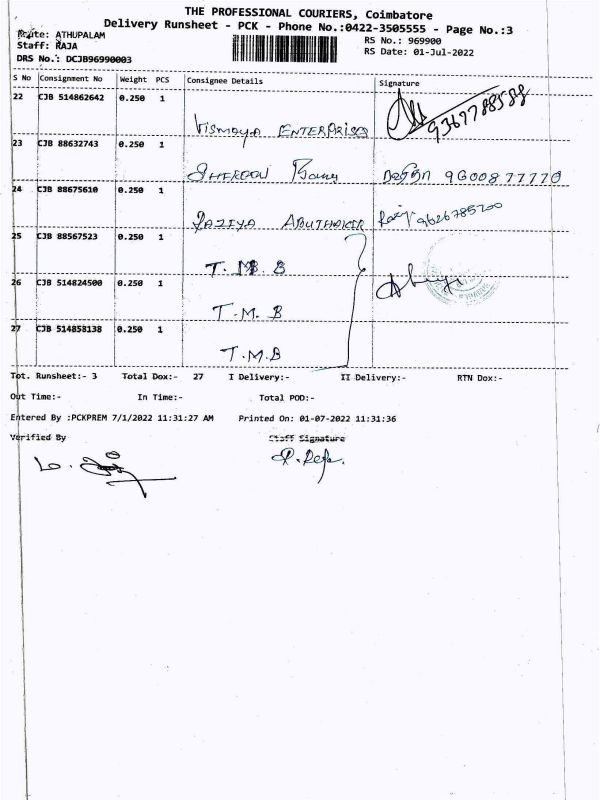 THE PROFESSIONAL COURIERS, Coimbatore
Delivery Runsheet - PCK - Phone No.:0422-3505555 - Page No.:3
Route: ATHUPALAM
Staff: RAJA
DRS No.: DCJB96990003
RS No.: 969900
RS Date: 01-Jul-2022
S No Consignment No Weight PCS Consignee Details Signature
22 CJB 514862642 0.250 1 Vismaya ENTERPRISES 9367788588
23 CJB 88632743 0.250 1 9600877770
24 CJB 88675610 0.250 1 RAZIYA ABUTHAKIR 9626785200
25 CJB 88567523 0.250 1 T.M.B
26 CJB 514824500 0.250 1 T.M.B
27 CJB 514858138 0.250 1 T.M.B
Tot. Runsheet:- 3 Total Dox:- 27 I Delivery:- II Delivery:- RTN Dox:-
Out Time:- In Time:- Total POD:-
Entered By :PCKPREM 7/1/2022 11:31:27 AM Printed On: 01-07-2022 11:31:36
Verified By Staff Signature